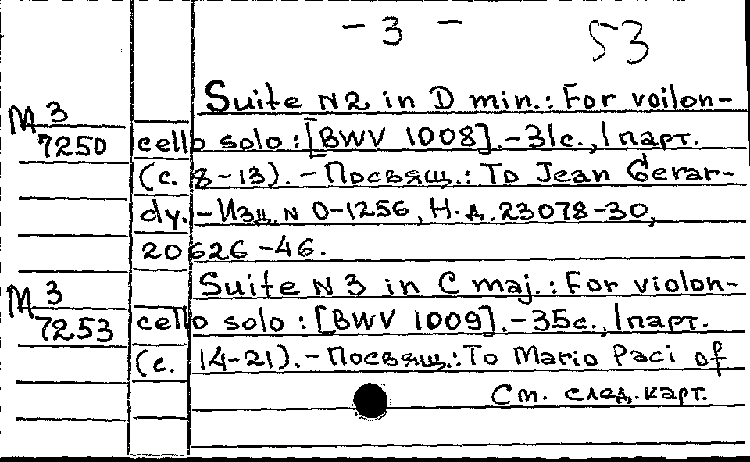 - 3 - 53
Suite N2 in D min.: For voilon-
М 3
7250 cello solo: [BWV 1008].-31с., 1 парт.
(с. 8-13).- Посвящ.: To Jean Gérar-
dy.- Изд. N 0-1256, Н.д. 23078-30,
20626-46.
Suite N 3 in C maj.: For violon-
М 3
7253 cello solo: [BWV 1009].-35с., 1 парт.
(с. 14-21).- Посвящ.: To Mario Paci of
См. след. карт.